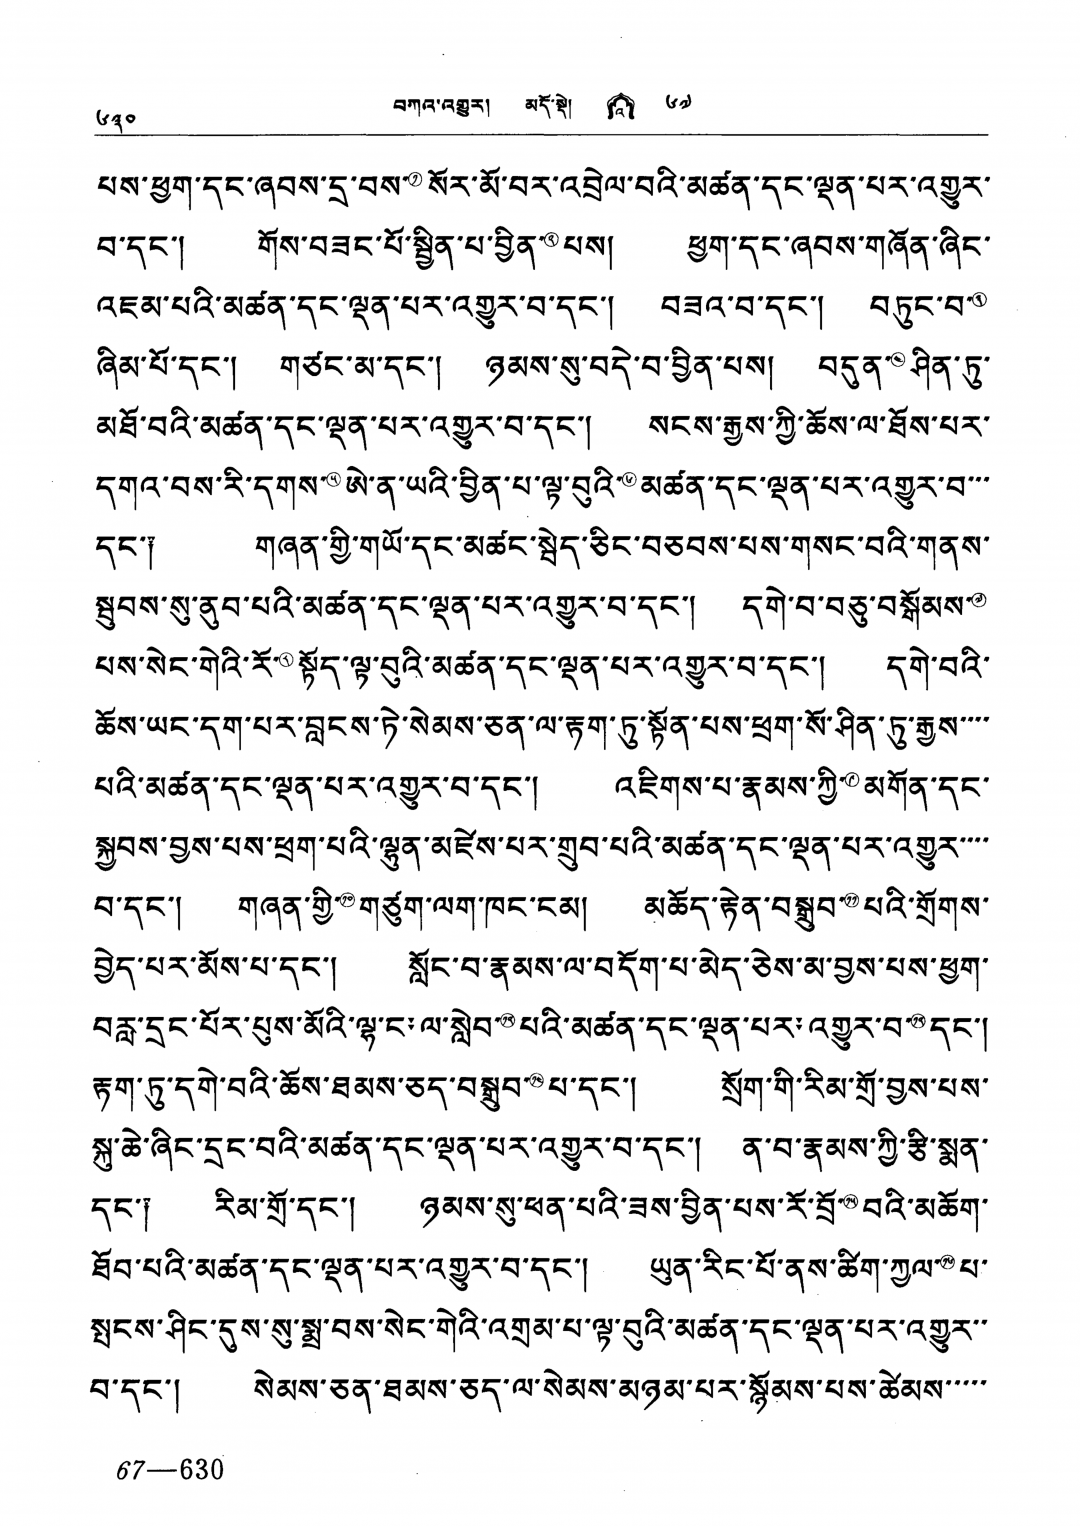 ༦༣༠ བཀའ་འགྱུར། མདོ་སྡེ། ༦༧
པས་ཕྱག་དང་ཞབས་དྲ་བས་① སོར་མོ་བར་འབྲེལ་བའི་མཚན་དང་ལྡན་པར་འགྱུར་
བ་དང་། གོས་བཟང་པོ་སྦྱིན་པ་བྱིན་②པས། ཕྱག་དང་ཞབས་གཞོན་ཞིང་
འཇམ་པའི་མཚན་དང་ལྡན་པར་འགྱུར་བ་དང་། བཟའ་བ་དང་། བཏུང་བ་③
ཞིམ་པོ་དང་། གཙང་མ་དང་། ཉམས་སུ་བདེ་བ་བྱིན་པས། བདུན་④ཤིན་ཏུ་
མཐོ་བའི་མཚན་དང་ལྡན་པར་འགྱུར་བ་དང་། སངས་རྒྱས་ཀྱི་ཆོས་ལ་ཐོས་པར་
དགའ་བས་རི་དགས་⑤ཨེ་ན་ཡའི་བྱིན་པ་ལྟ་བུའི་⑥མཚན་དང་ལྡན་པར་འགྱུར་བ་
དང་༔ གཞན་གྱི་གཡོ་དང་མཚང་སྦེད་ཅིང་བཅབས་པས་གསང་བའི་གནས་
སྦུབས་སུ་ནུབ་པའི་མཚན་དང་ལྡན་པར་འགྱུར་བ་དང་། དགེ་བ་བཅུ་བསྒོམས་⑦
པས་སེང་གེའི་རོ་⑧སྟོད་ལྟ་བུའི་མཚན་དང་ལྡན་པར་འགྱུར་བ་དང་། དགེ་བའི་
ཆོས་ཡང་དག་པར་བླངས་ཏེ་སེམས་ཅན་ལ་རྟག་ཏུ་སྟོན་པས་ཕྲག་སོ་ཤིན་ཏུ་རྒྱས་
པའི་མཚན་དང་ལྡན་པར་འགྱུར་བ་དང་། འཇིགས་པ་རྣམས་ཀྱི་⑨མགོན་དང་
སྐྱབས་བྱས་པས་ཕྲག་པའི་ལྷུན་མཛེས་པར་གྲུབ་པའི་མཚན་དང་ལྡན་པར་འགྱུར་
བ་དང་། གཞན་གྱི་⑩གཙུག་ལག་ཁང་ངམ། མཆོད་རྟེན་བསྒྲུབ་⑪པའི་གྲོགས་
བྱེད་པར་མོས་པ་དང་། སློང་བ་རྣམས་ལ་བདོག་པ་མེད་ཅེས་མ་བྱས་པས་ཕྱག་
བརླ་དྲང་པོར་པུས་མོའི་ལྷ་ང་༔ལ་སླེབ་⑫པའི་མཚན་དང་ལྡན་པར་༔འགྱུར་བ་⑬དང་།
རྟག་ཏུ་དགེ་བའི་ཆོས་ཐམས་ཅད་བསྒྲུབ་⑭པ་དང་། སྲོག་གི་རིམ་གྲོ་བྱས་པས་
སྐུ་ཆེ་ཞིང་དྲང་བའི་མཚན་དང་ལྡན་པར་འགྱུར་བ་དང་། ན་བ་རྣམས་ཀྱི་རྩི་སྨན་
དང་༔ རིམ་གྲོ་དང་། ཉམས་སུ་ཕན་པའི་ཟས་བྱིན་པས་རོ་བྲོ་⑮བའི་མཆོག་
ཐོབ་པའི་མཚན་དང་ལྡན་པར་འགྱུར་བ་དང་། ཡུན་རིང་པོ་ནས་ཚིག་ཀྱལ་⑯པ་
སྤངས་ཤིང་དུས་སུ་སྨྲ་བས་སེང་གེའི་འགྲམ་པ་ལྟ་བུའི་མཚན་དང་ལྡན་པར་འགྱུར་
བ་དང་། སེམས་ཅན་ཐམས་ཅད་ལ་སེམས་མཉམ་པར་སྙོམས་པས་ཚེམས་
67—630